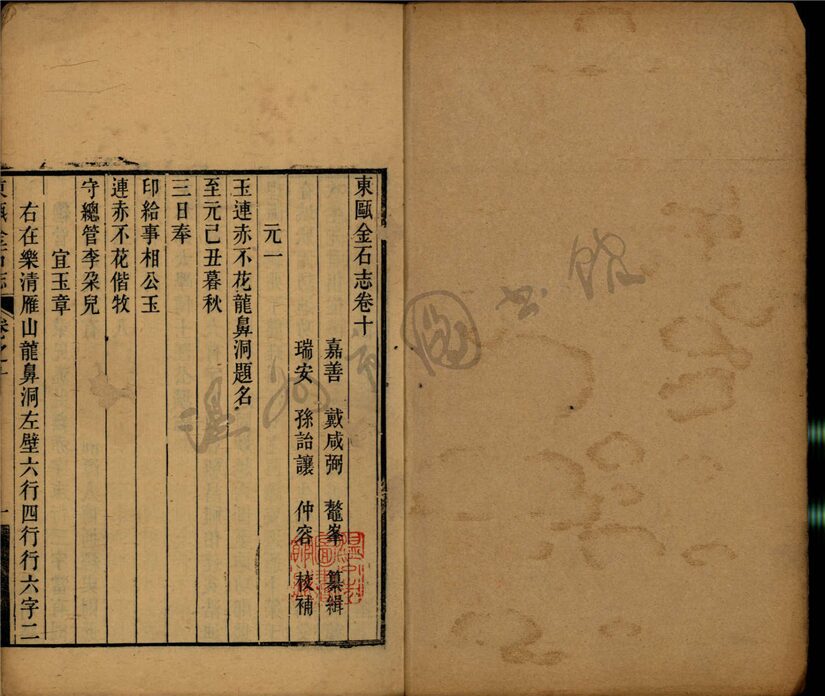 東甌金石志卷十
嘉善 戴咸弼 鼇峯 纂緝
瑞安 孫詒讓 仲容 校補
元一
玉連赤不花龍鼻洞題名
至元己丑暮秋
三日奉
印給事相公玉
連赤不花偕牧
守總管李朶兒
宜玉章
右在樂清雁山龍鼻洞左壁六行四行行六字二
東甌金石志 卷之十 一
温州市圖书館